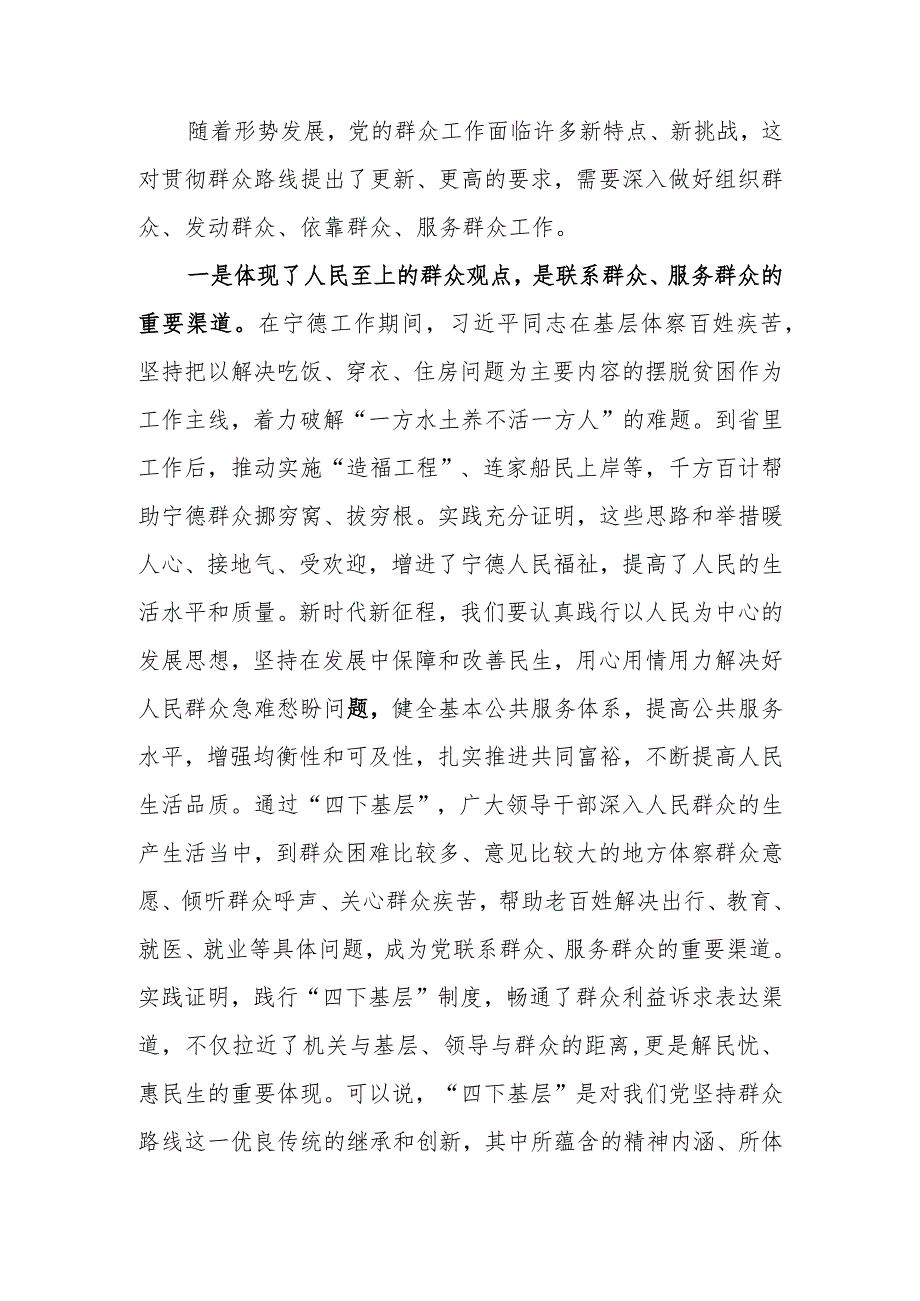 随着形势发展，党的群众工作面临许多新特点、新挑战，这
对贯彻群众路线提出了更新、更高的要求，需要深入做好组织群
众、发动群众、依靠群众、服务群众工作。
一是体现了人民至上的群众观点，是联系群众、服务群众的
重要渠道。在宁德工作期间，习近平同志在基层体察百姓疾苦，
坚持把以解决吃饭、穿衣、住房问题为主要内容的摆脱贫困作为
工作主线，着力破解“一方水土养不活一方人”的难题。到省里
工作后，推动实施“造福工程”、连家船民上岸等，千方百计帮
助宁德群众挪穷窝、拔穷根。实践充分证明，这些思路和举措暖
人心、接地气、受欢迎，增进了宁德人民福祉，提高了人民的生
活水平和质量。新时代新征程，我们要认真践行以人民为中心的
发展思想，坚持在发展中保障和改善民生，用心用情用力解决好
人民群众急难愁盼问题，健全基本公共服务体系，提高公共服务
水平，增强均衡性和可及性，扎实推进共同富裕，不断提高人民
生活品质。通过“四下基层”，广大领导干部深入人民群众的生
产生活当中，到群众困难比较多、意见比较大的地方体察群众意
愿、倾听群众呼声、关心群众疾苦，帮助老百姓解决出行、教育、
就医、就业等具体问题，成为党联系群众、服务群众的重要渠道。
实践证明，践行“四下基层”制度，畅通了群众利益诉求表达渠
道，不仅拉近了机关与基层、领导与群众的距离,更是解民忧、
惠民生的重要体现。可以说，“四下基层”是对我们党坚持群众
路线这一优良传统的继承和创新，其中所蕴含的精神内涵、所体